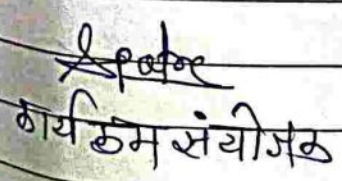 कार्यक्रम संयोजक